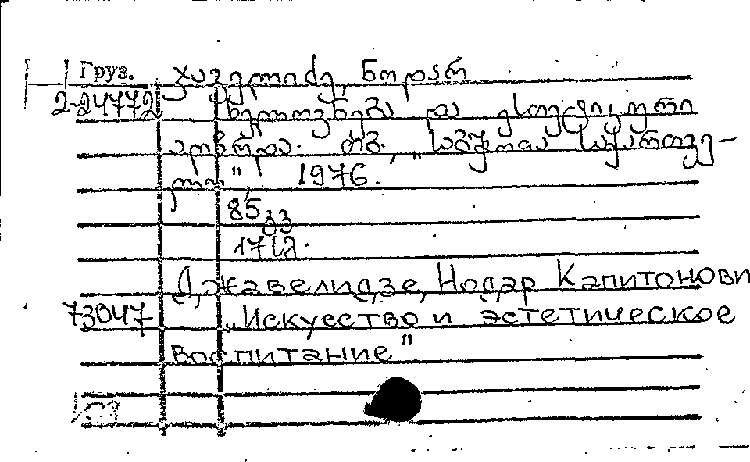 Груз. ჯაველიძე, ნოდარ
2-24772 ხელოვნება და ესთეტიკური
აღზრდა. თბ., „საბჭოთა საქართვე-
ლო", 1976.
85 გვ
Джавелидзе, Нодар Капитонови
73047 „Искусство и эстетическое
воспитание"